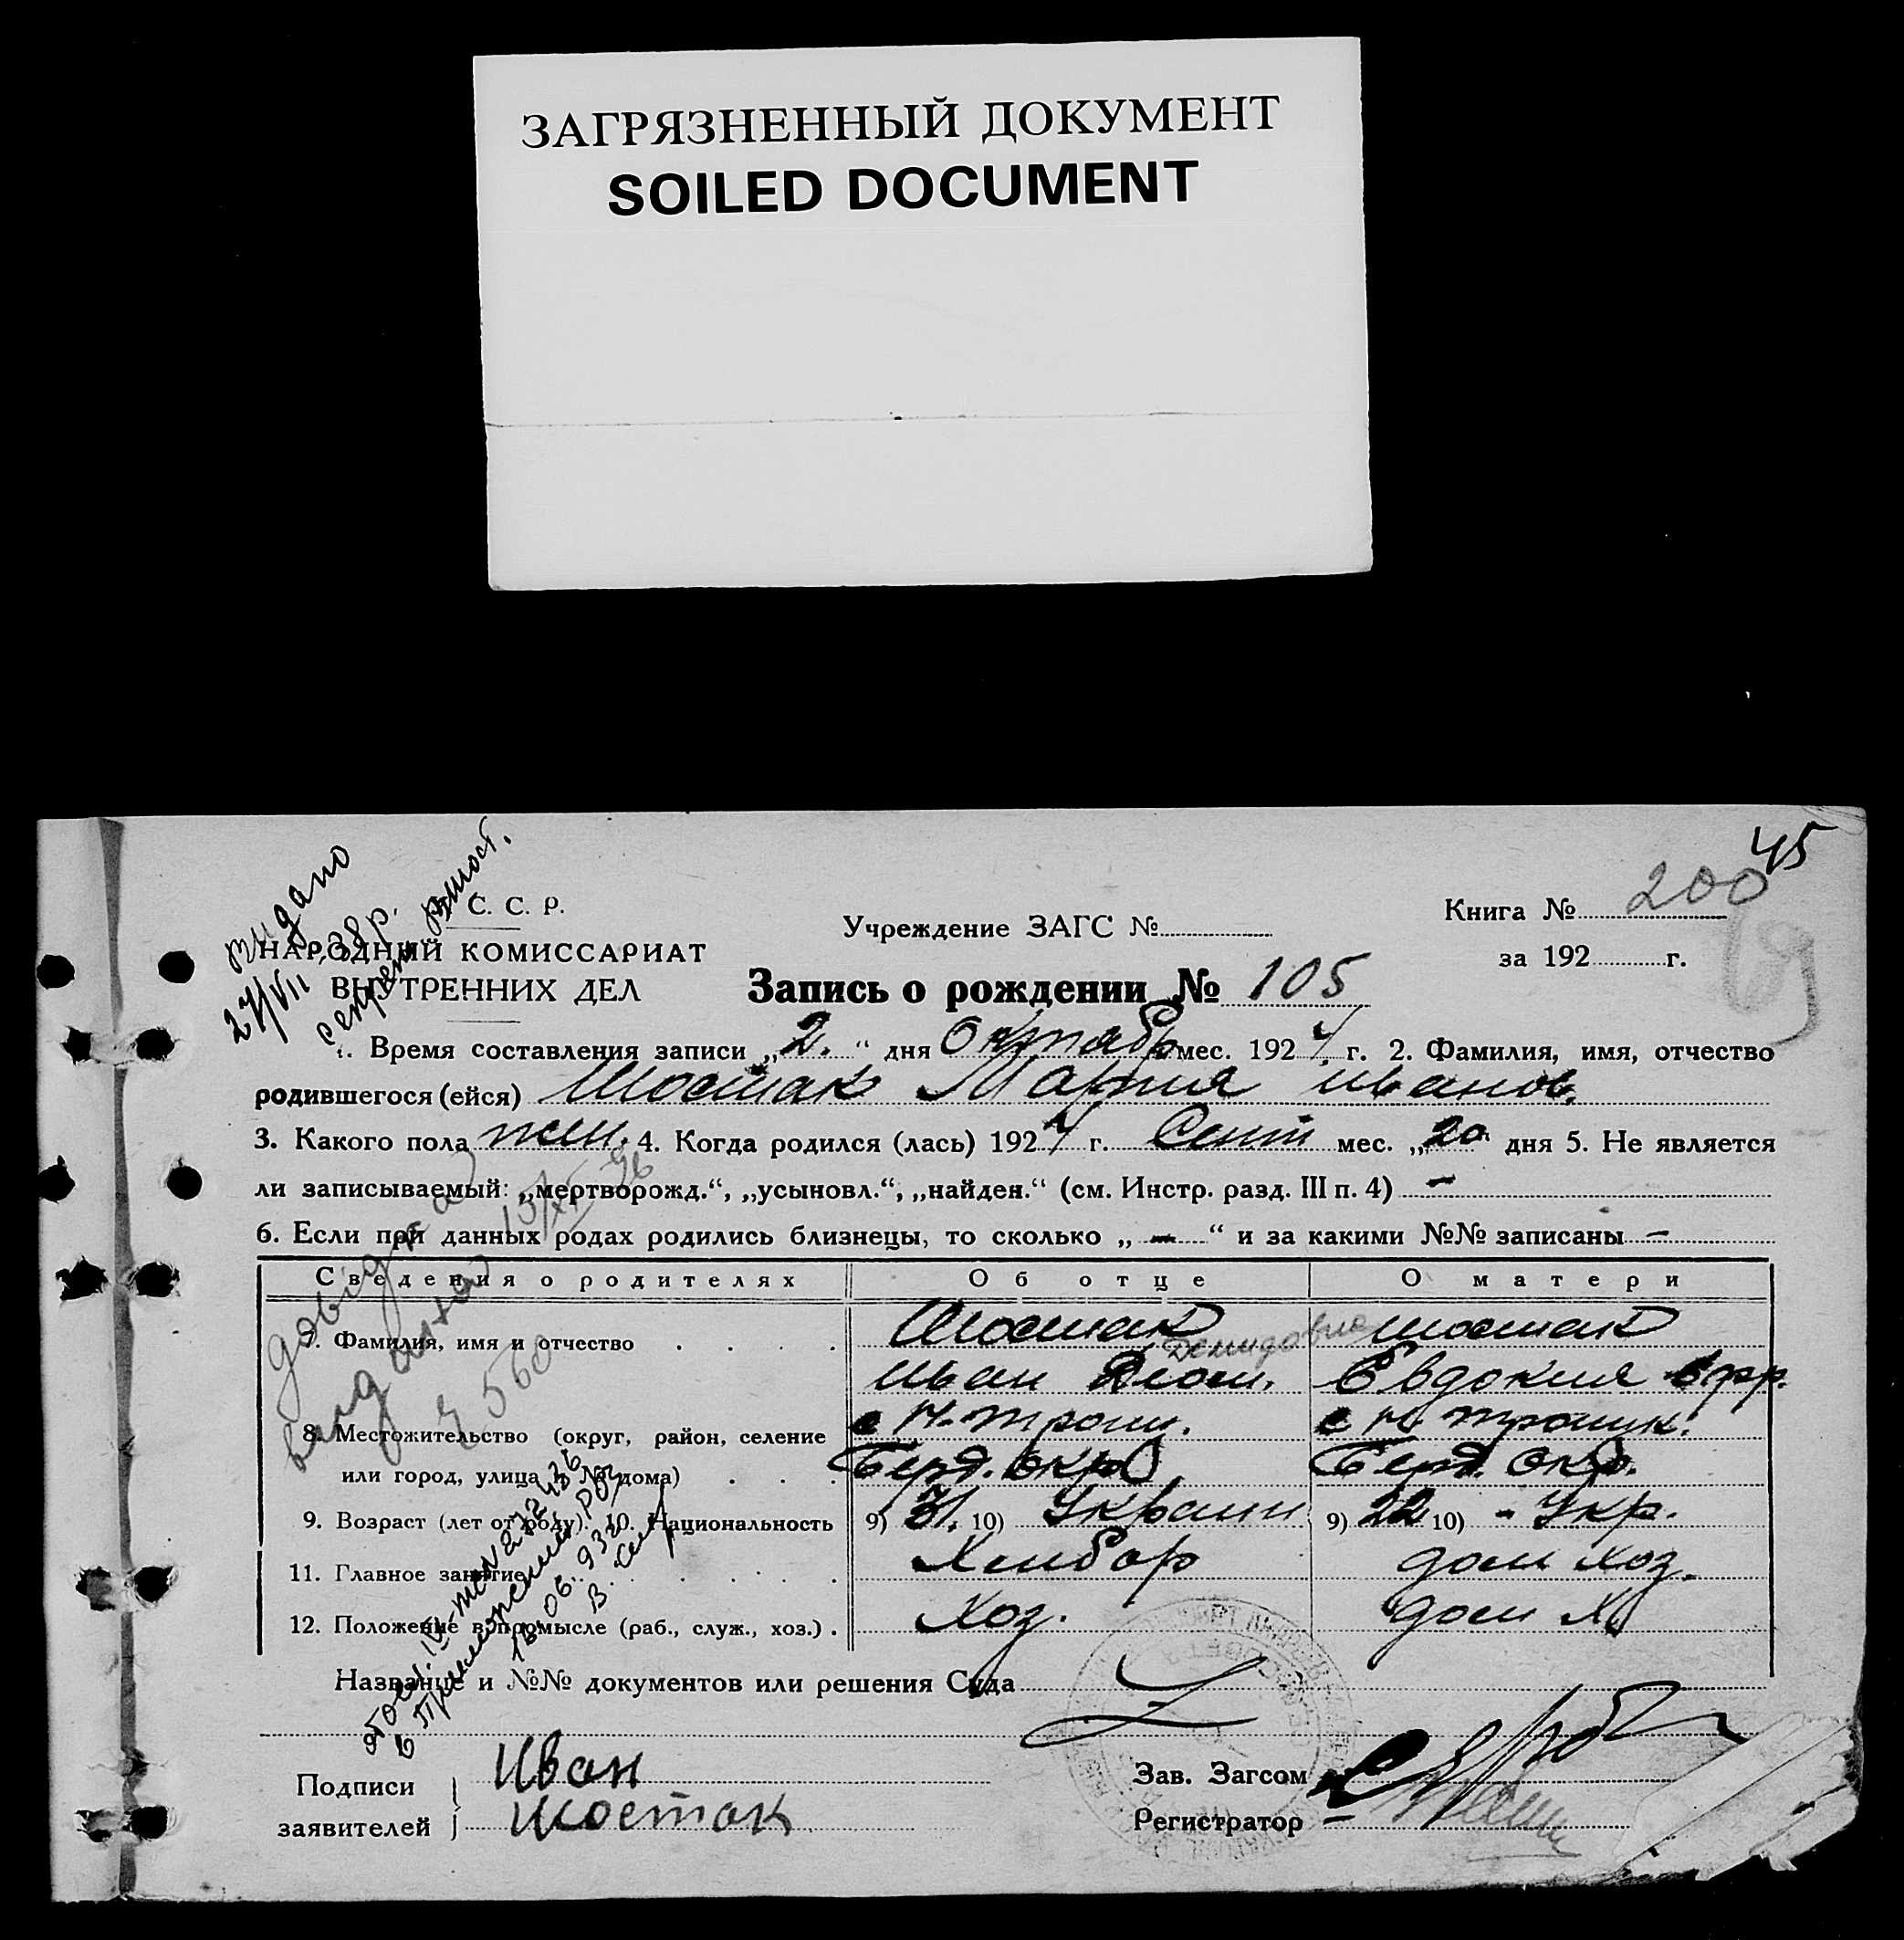 ЗАГРЯЗНЕННЫЙ ДОКУМЕНТ
SOILED DOCUMENT
45
200
видано
27/VII-38р.
С. С. Р.
НАРОДНЫЙ КОМИССАРИАТ
ВНУТРЕННИХ ДЕЛ
Учреждение ЗАГС №
Книга №
за 192 г.
Запись о рождении № 105
1. Время составления записи „2.“ дня Октябр мес. 1927 г. 2. Фамилия, имя, отчество
родившегося (ейся) Шостак Мария Иванов.
3. Какого пола жен. 4. Когда родился (лась) 1927 г. Сент мес. „20“ дня 5. Не является
ли записываемый: „мертворожд.“, „усыновл.“, „найден.“ (см. Инстр. разд. III п. 4) –
6. Если при данных родах родились близнецы, то сколько „–“ и за какими №№ записаны –
Сведения о родителях Об отце О матери
7. Фамилия, имя и отчество . . . . Шостак Шостак
Демидовна
Иван Евдокия
8. Местожительство (округ, район, селение с Н. Троиц. с Н. Троицк.
или город, улица и № дома) . . . Берд. окр. Берд. окр.
9. Возраст (лет от роду). 10. Национальность 9) 31. 10) Украин 9) 22 10) - Укр.
11. Главное занятие . . . . . . Хлебор дом хоз.
12. Положение в промысле (раб., служ., хоз.) . Хоз. дом Х
Название и №№ документов или решения Суда
Подписи
заявителей
Иван
Шостак
Зав. Загсом
Регистратор